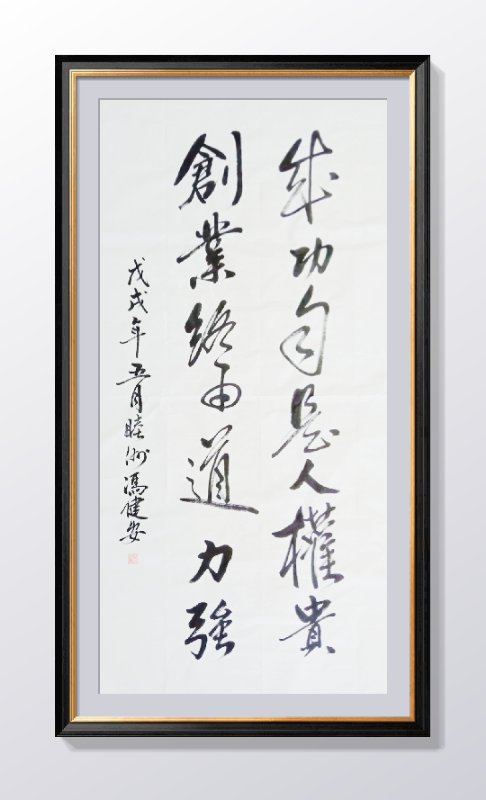 成功自是人權貴
創業終由道力強
戊戌年五月睦洲馮健安